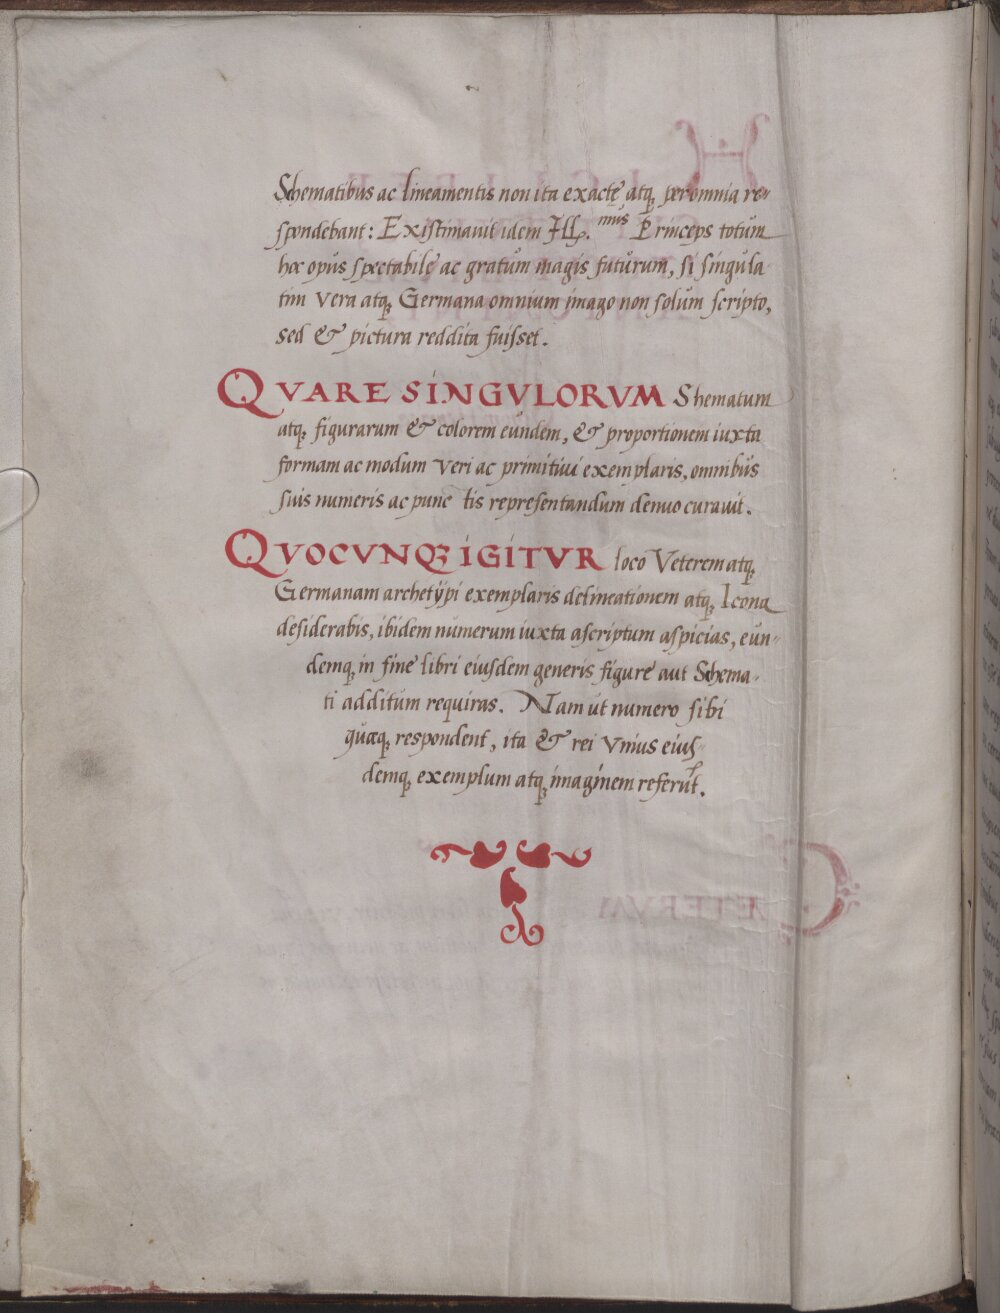 Schematibus ac lineamentis non ita exactę atq; per omnia re-
spondebant: Existimauit idem Ill.mus Princeps totum
hoc opus spectabile ac gratum magis futurum, si singula
tim vera atq; Germana omnium imago non solum scripto,
sed & pictura reddita fuisset.
QVARE SINGVLORVM Shematum
atq; figurarum & colorem eundem, & proportionem iuxta
formam ac modum veri ac primitiui exemplaris, omnibus
suis numeris ac punc tis representandum denuo curauit.
QVOCVNQ; IGITVR loco Veterem atq;
Germanam archetÿpi exemplaris delineationem atq; Icona
desiderabis, ibidem numerum iuxta ascriptum aspicias, eun-
demq; in fine libri eiusdem generis figure aut Schema-
ti additum requiras. Nam ut numero sibi
quæq; respondent, ita & rei vnius eius-
demq; exemplum atq; imaginem referūt.